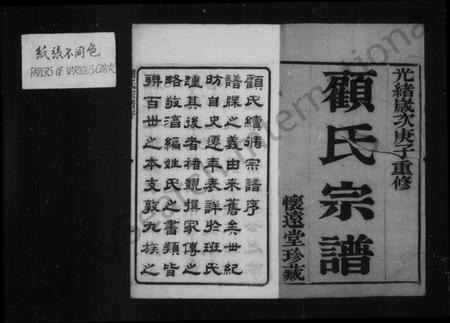 紙張不同色
PAPERS OF VARIOUS COLORS
光緒歲次庚子重修
顧氏宗譜
懷遠堂珍藏
顧氏續補宗譜序
譜牒之義由來舊矣世紀
昉自史遷年表詳於班氏
踵其後者褚覬撰家傳之
略敬淳編姓氏之書類皆
聯百世之本支敦九族之